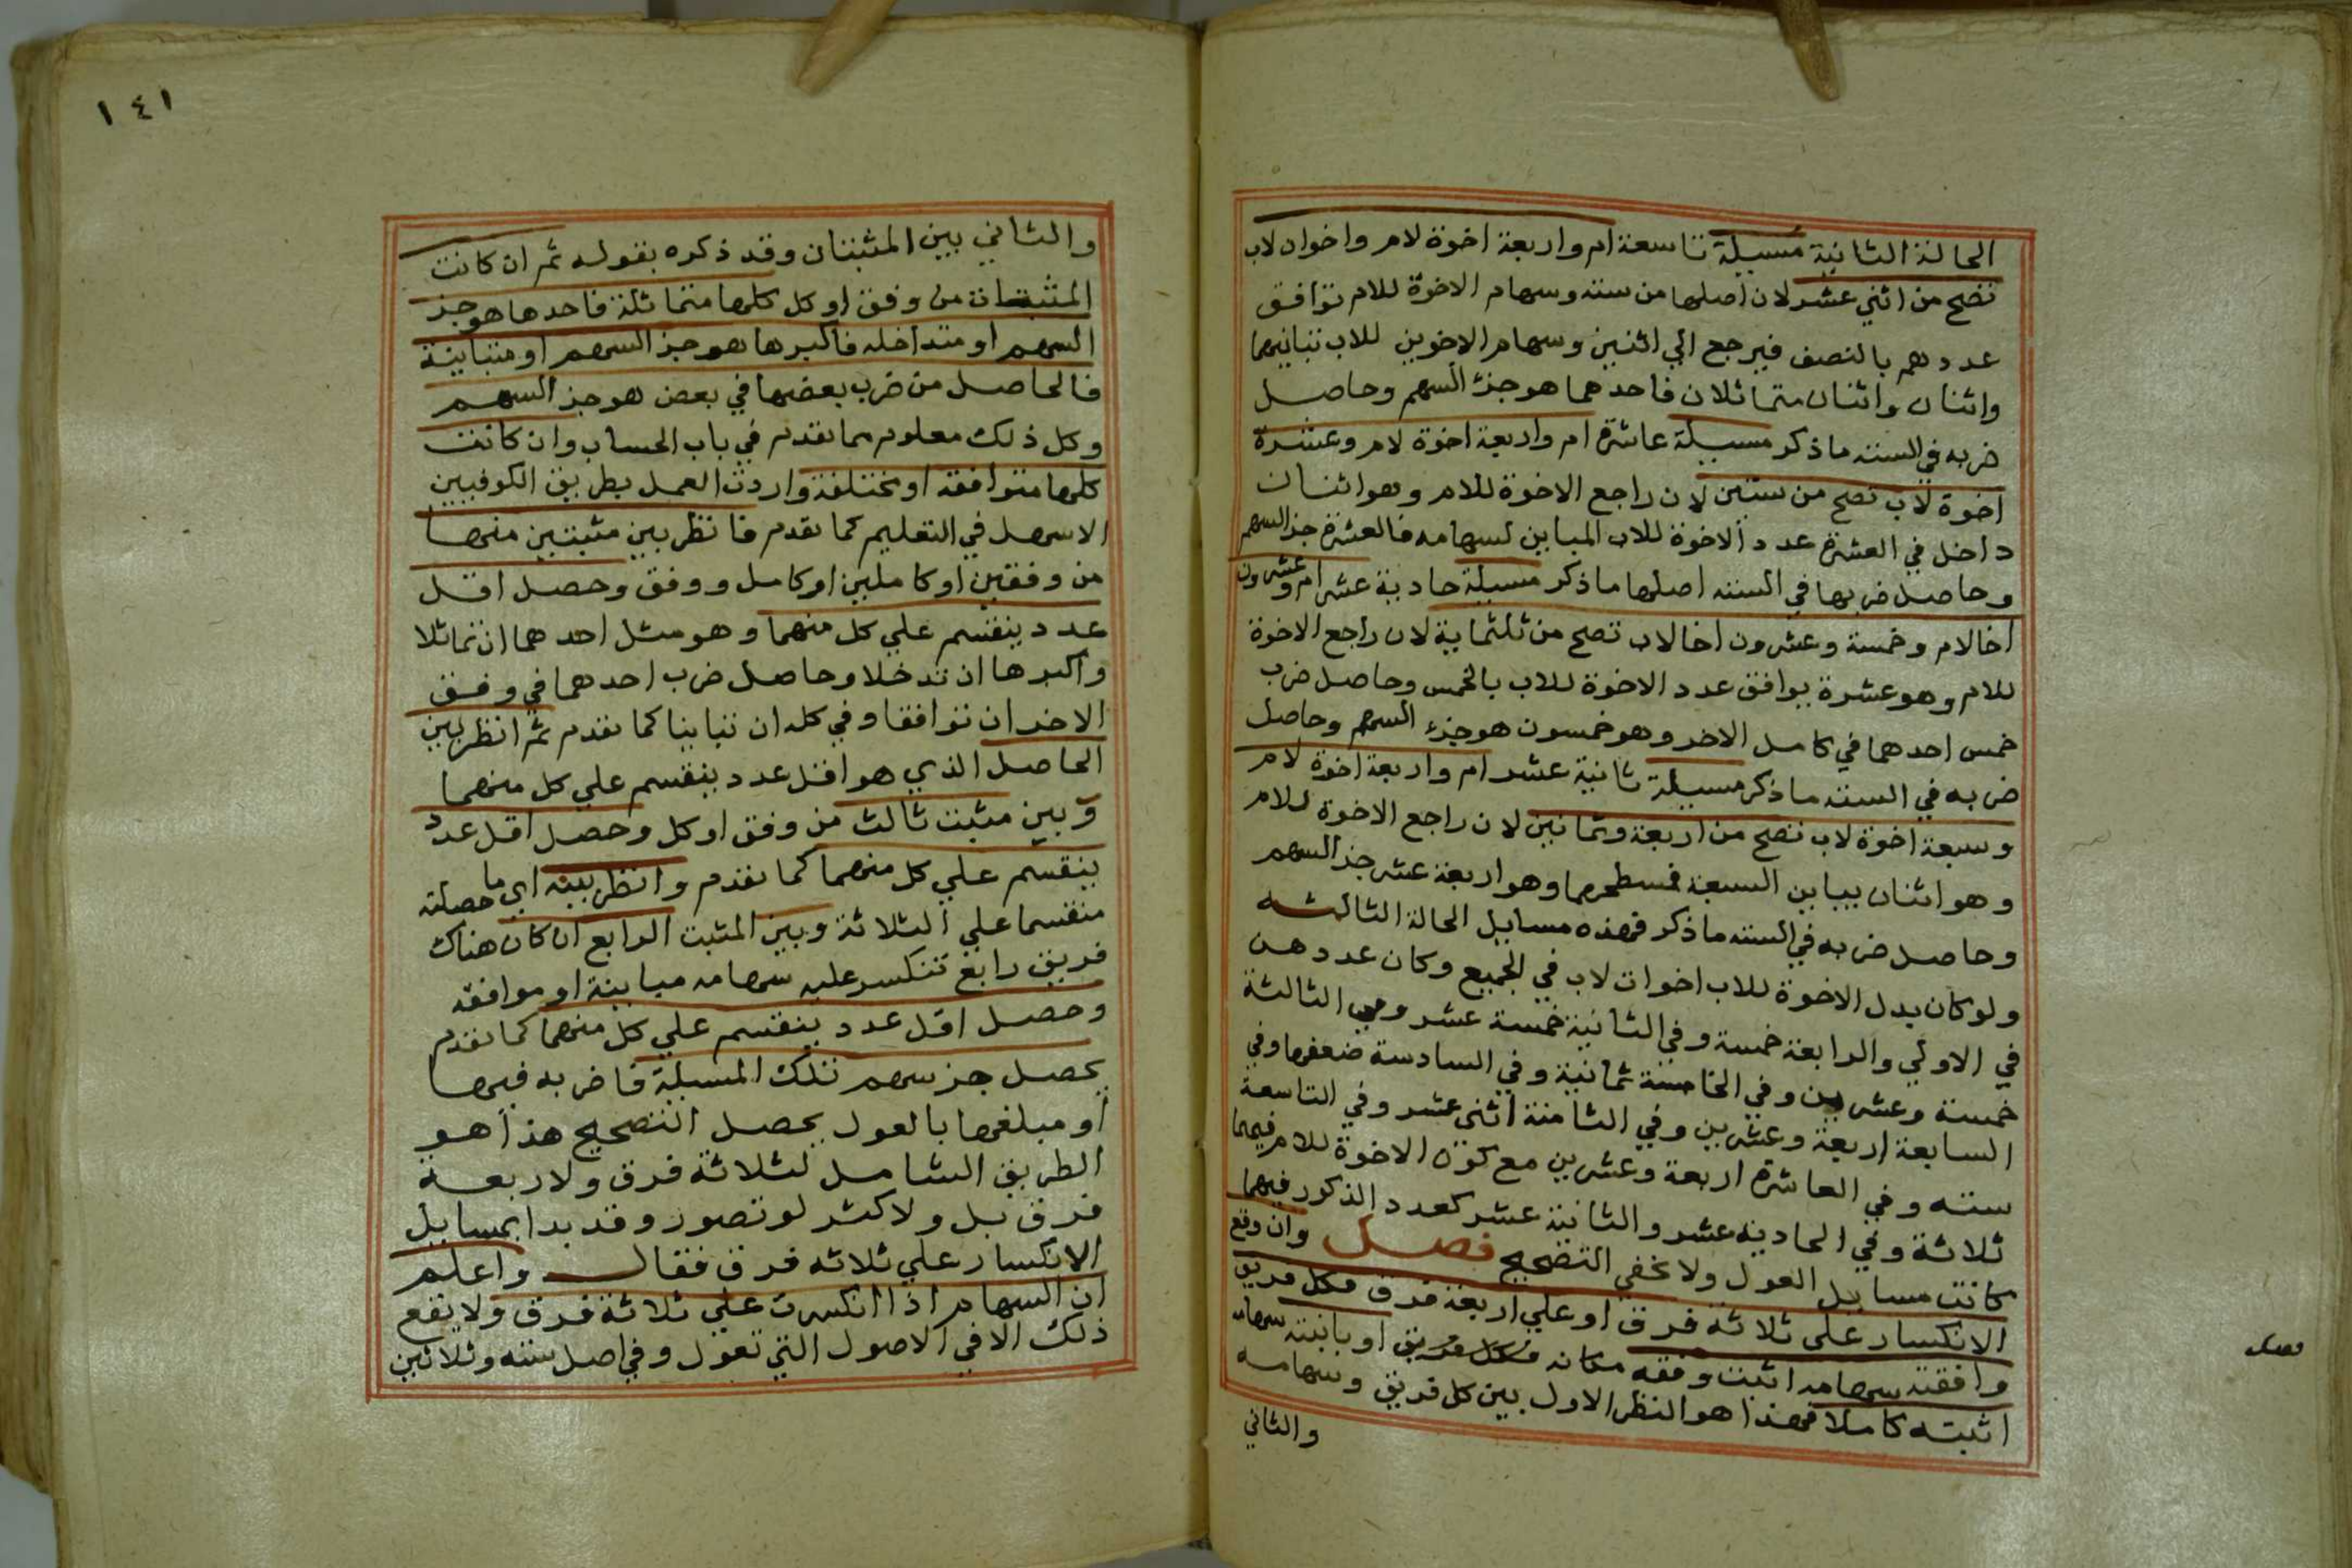 الحالة الثانية مسيلة تاسعة ام واربعة اخوة لام واخوان لاب
تصح من اثني عشر لان اصلها من ستة وسهام الاخوة للام توافق
عددهم بالنصف فيرجع الي اثنين وسهام الاخوين للاب تباينهما
واثنان واثنان متماثلان فاحدهما هو جزء السهم وحاصل
ضربه في الستة ما ذكر مسيلة عاشرة ام واربعة اخوة لام وعشرة
اخوة لاب تصح من ستين لان راجع الاخوة للام وهو اثنان
داخل في العشرة عدد الاخوة للاب المباين لسهامه فالعشرة جز السهم
وحاصل ضربها في الستة اصلها ما ذكر مسيلة حادية عشر ام وعشرون
اخا لام وخمسة وعشرون اخا لاب تصح من ثلثماية لان راجع الاخوة
للام وهو عشرة يوافق عدد الاخوة للاب بالخمس وحاصل ضرب
خمس احدهما في كامل الاخر وهو خمسون هو جزء السهم وحاصل
ضربه في الستة ما ذكر مسيلة ثانية عشر ام واربعة اخوة لام
وسبعة اخوة لاب تصح من اربعة وثمانين لان راجع الاخوة للام
وهو اثنان يباين السبعة فسطحهما وهو اربعة عشر جز السهم
وحاصل ضربه في الستة ما ذكر فهذه مسايل الحالة الثالثة
ولو كان بدل الاخوة للاب اخوات لاب في الجميع وكان عددهن
في الاولي والرابعة خمسة وفي الثانية خمسة عشر وفي الثالثة
خمسة وعشرين وفي الخامسة ثمانية وفي السادسة ضعفها وفي
السابعة اربعة وعشرين وفي الثامنة اثني عشر وفي التاسعة
ستة وفي العاشرة اربعة وعشرين مع كون الاخوة للام فيهما
ثلاثة وفي الحادية عشر والثانية عشر كعدد الذكور فيهما
كانت مسايل العول ولا يخفي التصحيح فصل وان وقع
الانكسار علي ثلاثة فرق او علي اربعة فرق فكل فريق
وافقته سهامه اثبت وفقه مكانه فكل فريق او باينته سهامه
اثبته كاملا فهذا هو النظر الاول بين كل فريق وسهامه
والثاني
فصل
١٤١
والثاني بين المثبتان وقد ذكره بقوله ثم ان كانت
المثبتات من وفق او كل كلها متماثلة فاحدها هو جز
السهم او متداخله فاكبرها هو جز السهم او متباينة
فالحاصل من ضرب بعضها في بعض هو جز السهم
وكل ذلك معلوم مما تقدم في باب الحساب وان كانت
كلها متوافقة او مختلفة واردت العمل بطريق الكوفيين
الاسهل في التعليم كما تقدم فانظر بين مثبتين منها
من وفقين او كاملين او كامل ووفق وحصل اقل
عدد ينقسم علي كل منهما وهو مثل احدهما ان تماثلا
واكبرها ان تدخلا وحاصل ضرب احدهما في وفق
الاخر ان توافقا وفي كله ان تباينا كما تقدم ثم انظر بين
الحاصل الذي هو اقل عدد ينقسم علي كل منهما
وبين مثبت ثالث من وفق او كل وحصل اقل عدد
ينقسم علي كل منهما كما تقدم وانظر بينه اي ما حصلته
منقسما علي الثلاثة وبين المثبت الرابع ان كان هناك
فريق رابع تنكسر عليه سهامه مباينة او موافقه
وحصل اقل عدد ينقسم علي كل منهما كما تقدم
يحصل جز سهم تلك المسيلة فاضربه فيها
او مبلغها بالعول يحصل التصحيح هذا هو
الطريق الشامل لثلاثة فرق ولاربعة
فرق بل ولاكثر لو تصور وقد بدا بمسايل
الانكسار علي ثلاثه فرق فقال واعلم
ان السهام اذا انكسرت علي ثلاثة فرق ولا يقع
ذلك الا في الاصول التي تعول وفي اصل ستة وثلاثين